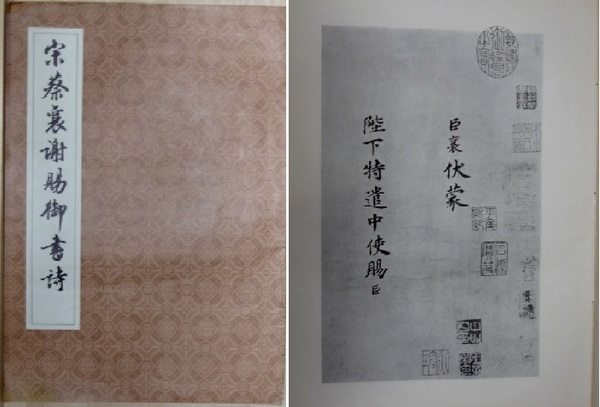 宋蔡襄谢賜御書詩
臣襄伏蒙
陛下特遣中使賜臣